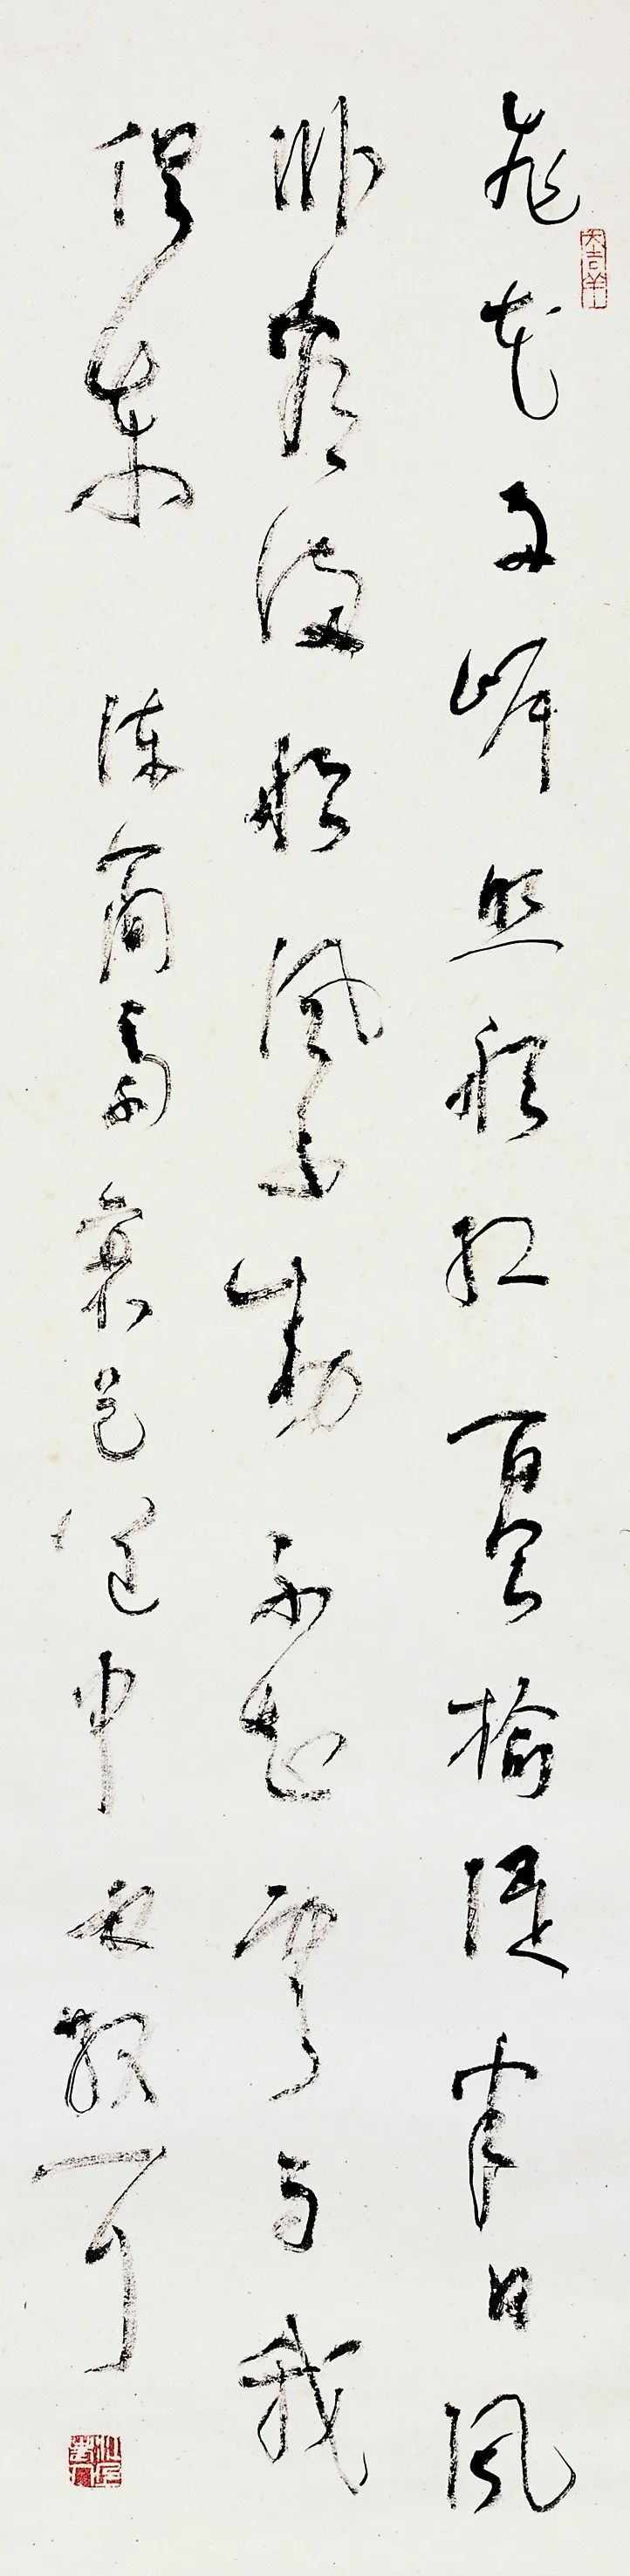 飛花兩岸照船紅百里榆堤半日風
臥看滿船雲不動不知雲與我
俱東 陳簡齋襄邑道中 林散可